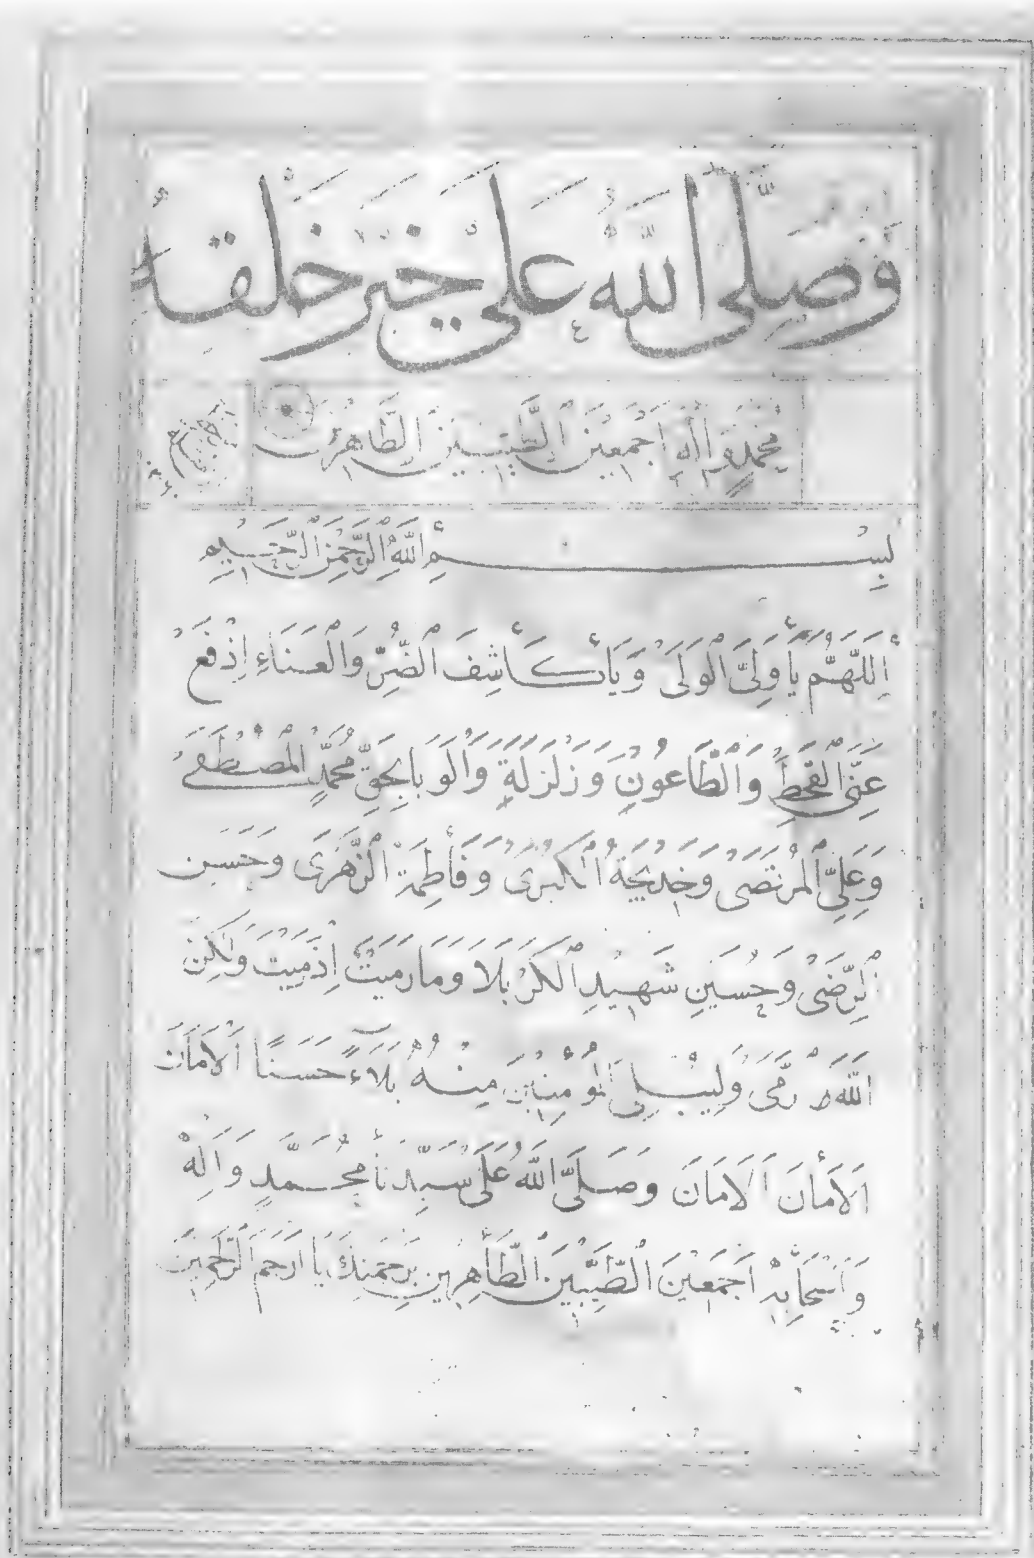 وَصَلَّى اللَّهُ عَلَى خَيْرِ خَلْقِهِ
مُحَمَّدٍ وَالِهِ اَجْمَعِينَ الطَّيِّبِينَ الطَّاهِرِينَ
بِسْمِ اللَّهِ الرَّحْمَنِ الرَّحِيمِ
اَللَّهُمَّ يَا وَلِيَّ الْوَلَى وَيَا كَاشِفَ الضُّرِّ وَالْعَنَاءِ اِدْفَعْ
عَنِّي الْقَحْطِ وَالطَّاعُونِ وَزَلْزَلَةٍ وَالْوَبَا بِحَقِّ مُحَمَّدٍ الْمُصْطَفَى
وَعَلِيِّ الْمُرْتَضَى وَخَدِيجَةُ الْكُبْرَى وَفَاطِمَةَ الزَّهْرَى وَحَسَنِ
الرِّضَى وَحُسَيْنِ شَهِيدِ الْكَرْبَلَا وَمَا رَمَيْتَ اِذْ رَمَيْتَ وَلَكِنَّ
اللَّهَ رَمَى وَلِيُبْلِيَ الْمُؤْمِنِينَ مِنْهُ بَلَاءً حَسَنًا اَلْاَمَانَ
اَلْاَمَانَ اَلْاَمَانَ وَصَلَّى اللَّهُ عَلَى سَيِّدِنَا مُحَمَّدٍ وَالِهِ
وَاَصْحَابِهِ اَجْمَعِينَ الطَّيِّبِينَ الطَّاهِرِينَ بِرَحْمَتِكَ يَا اَرْحَمَ الرَّاحِمِينَ